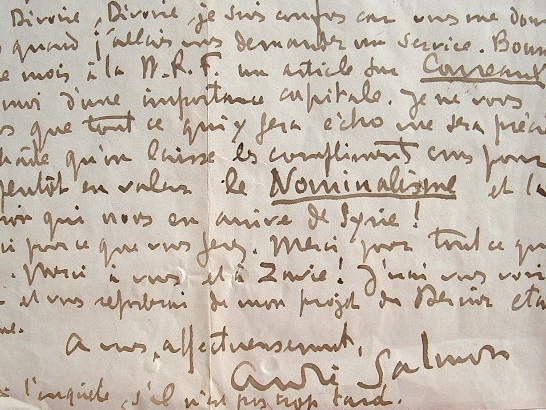 Divoire, Divoire, je suis confus car vous me donn
quand j'allais vous demander un service. Bonn
e mois à la N.R.F. un article sur
moi d'une importance capitale. Je ne vous
s que tout ce qui y fera écho me sera préci
qu'on laisse les compliments
plutôt en valeur le Nominalisme et la
qui nous en arrive de Syrie !
ci pour ce que vous ferez. Merci pour tout ce que
. Merci à vous et à Zavie ! J'irai vous voir
et vous reparlerai de mon projet du Dernier
me.
A vous, affectueusement,
André Salmon
l'enquête, s'il n'est pas trop tard.